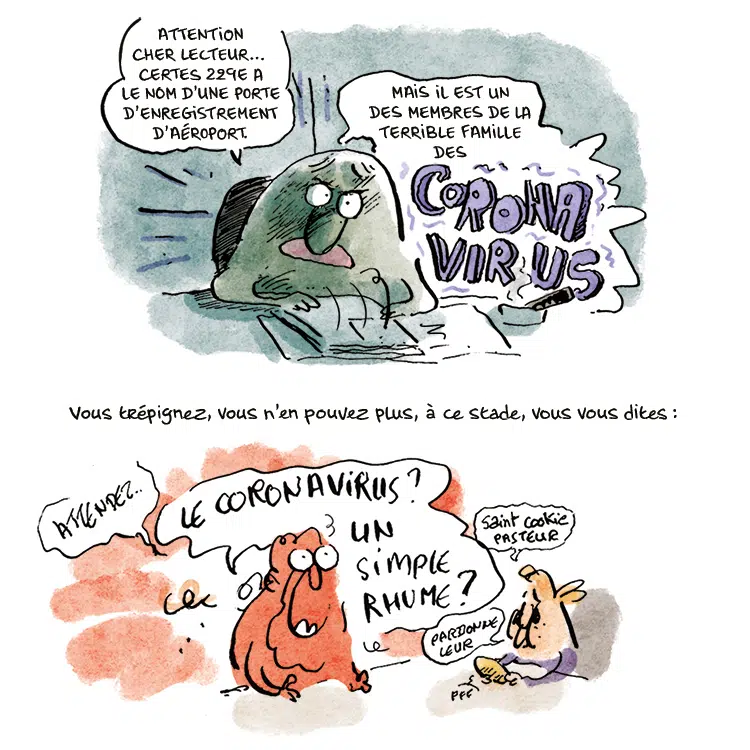 ATTENTION
CHER LECTEUR...
CERTES 229E A
LE NOM D'UNE PORTE
D'ENREGISTREMENT
D'AÉROPORT.
MAIS IL EST UN
DES MEMBRES DE LA
TERRIBLE FAMILLE
DES
CORONA
VIRUS
Vous trépignez, vous n'en pouvez plus, à ce stade, vous vous dites :
ATTENDEZ..
LE CORONAVIRUS?
UN
SIMPLE
RHUME?
Saint cookie
PASTEUR
PARDONNE
LEUR
PFF